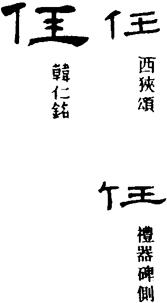 任
西狹頌
任
禮器碑側
任
韓仁銘